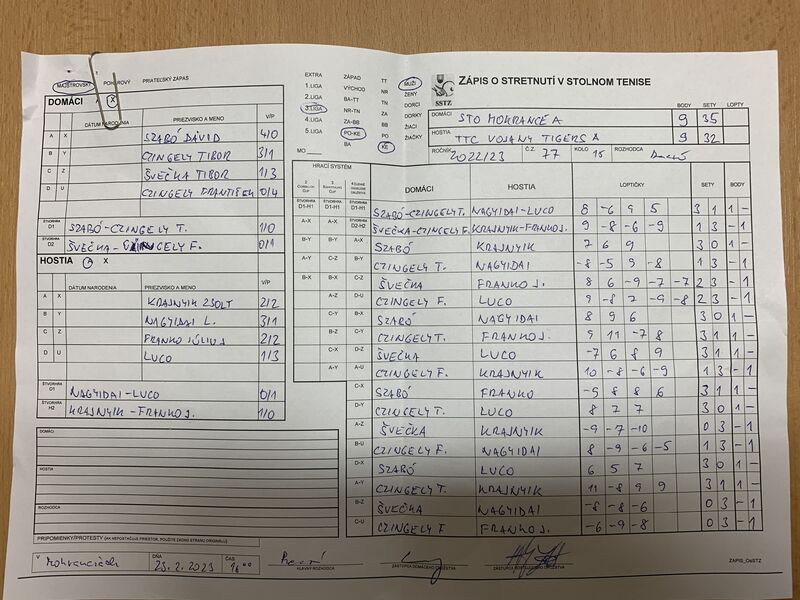 MAJSTROVSKÝ
POHÁROVÝ
PRIATEĽSKÝ ZÁPAS
DOMÁCI A X
DÁTUM NARODENIA PRIEZVISKO A MENO V/P
A X SZABÓ DÁVID 4/0
B Y CZINGELY TIBOR 3/1
C Z ŠVEČKA TIBOR 1/3
D U CZINGELY FRANTIŠEK 0/4
ŠTVORHRA D1 SZABÓ-CZINGELY T. 1/0
ŠTVORHRA D2 ŠVEČKA-CZINGELY F. 0/1
HOSTIA A X
DÁTUM NARODENIA PRIEZVISKO A MENO V/P
A X KRAJNYIK ZSOLT 2/2
B Y NAGYIDAI L. 3/1
C Z FRANKO JÚLIUS 2/2
D U LUCO 1/3
ŠTVORHRA D1 NAGYIDAI-LUCO 0/1
ŠTVORHRA H2 KRAJNYIK-FRANKO J. 1/0
DOMÁCI
HOSTIA
ROZHODCA
PRIPOMIENKY/PROTESTY (AK NEPOSTAČUJE PRIESTOR, POUŽITE ZADNÚ STRANU ORIGINÁLU)
EXTRA ZÁPAD TT MUŽI
1.LIGA VÝCHOD NR ŽENY
2.LIGA BA-TT TN DORCI
3.LIGA NR-TN ZA DORKY
4.LIGA ZA-BB BB ŽIACI
5.LIGA PO-KE PO ŽIAČKY
MO BA KE
SSTZ
ZÁPIS O STRETNUTÍ V STOLNOM TENISE
BODY SETY LOPTY
DOMÁCI STO MOKRANCE A 9 35
HOSTIA TTC VOJANY TIGERS A 9 32
ROČNÍK 2022/23 Č.Z. 77 KOLO 15 ROZHODCA
HRACÍ SYSTÉM
DOMÁCI HOSTIA LOPTIČKY SETY BODY
ŠTVORHRA D1-H1 ŠTVORHRA D1-H1 ŠTVORHRA D1-H1 SZABÓ-CZINGELY T. NAGYIDAI-LUCO 8 -6 9 5 3 1 1 -
A-X A-X ŠTVORHRA D2-H2 ŠVEČKA-CZINGELY F. KRAJNYIK-FRANKO J. 9 -8 -6 -9 1 3 - 1
B-Y B-Y A-X SZABÓ KRAJNYIK 7 6 9 3 0 1 -
A-Y C-Z B-Y CZINGELY T. NAGYIDAI -8 -5 9 -8 1 3 - 1
B-X B-X C-Z ŠVEČKA FRANKO J. 8 6 -9 -7 -7 2 3 - 1
A-Z D-U CZINGELY F. LUCO 9 -8 7 -9 -8 2 3 - 1
C-X B-X SZABÓ NAGYIDAI 8 9 6 3 0 1 -
B-Z C-Y CZINGELY T. FRANKO J. 9 11 -7 8 3 1 1 -
C-Y D-Z ŠVEČKA LUCO -7 6 8 9 3 1 1 -
A-Y A-U CZINGELY F. KRAJNYIK 10 -8 -6 -9 1 3 - 1
C-X SZABÓ FRANKO -9 8 8 6 3 1 1 -
D-Y CZINGELY T. LUCO 8 7 7 3 0 1 -
A-Z ŠVEČKA KRAJNYIK -9 -7 -10 0 3 - 1
B-U CZINGELY F. NAGYIDAI 8 -9 -6 -5 1 3 - 1
D-X SZABÓ LUCO 6 5 7 3 0 1 -
A-Y CZINGELY T. KRAJNYIK 11 -8 9 9 3 1 1 -
B-Z ŠVEČKA NAGYIDAI -8 -8 -6 0 3 - 1
C-U CZINGELY F FRANKO J. -6 -9 -8 0 3 - 1
V Mokranciach DŇA 25.2.2023 ČAS 16 00
HLAVNÝ ROZHODCA
ZÁSTUPCA DOMÁCEHO DRUŽSTVA
ZÁSTUPCA HOSŤUJÚCEHO DRUŽSTVA
ZAPIS_OsSTZ